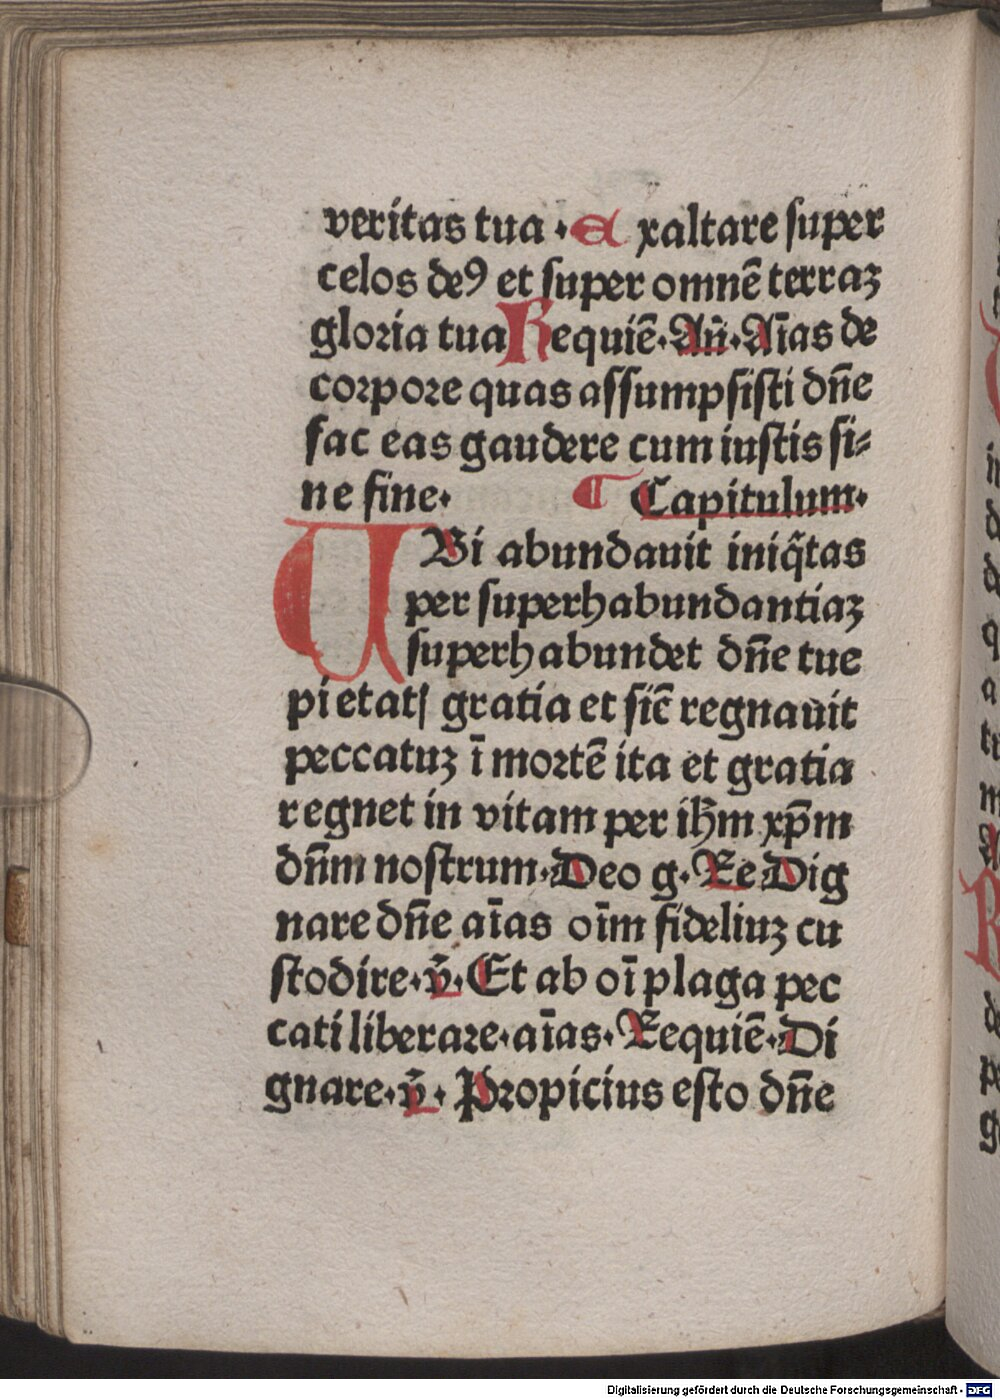 veritas tua · E xaltare super
celos deꝰ et super omnē terraꝫ
gloria tua Requiē · An̄ · Aīas de
corpore quas assumpsisti dn̄e
fac eas gaudere cum iustis si⸗
ne fine · ¶ Capitulum ·
UBi abundauit iniq̄tas
per superhabundantiaꝫ
superhabundet dn̄e tue
pietatꝭ gratia et sic̄ regnauit
peccatuꝫ ī mortē ita et gratia
regnet in vitam per ih̄m xp̄m
dn̄m nostrum · Deo g · Re Dig
nare dn̄e aīas oīm fideliuꝫ cu
stodire · v̄ · Et ab oī plaga pec
cati liberare · aīas · Requiē · Di
gnare · v̄ · Propicius esto dn̄e
Digitalisierung gefördert durch die Deutsche Forschungsgemeinschaft - DFG